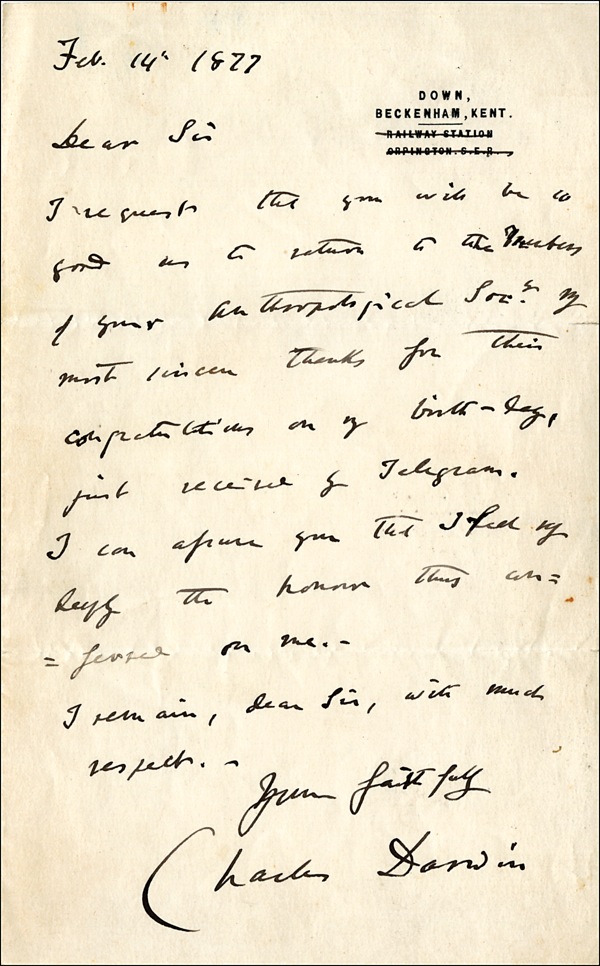 Feb. 14th 1877
DOWN,
BECKENHAM, KENT.
RAILWAY STATION
ORPINGTON. S.E.R.
Dear Sir
I request that you will be so
good as to return to the Members
of your Anthropological Socy. my
most sincere thanks for their
congratulations on my birth-day,
just received by Telegram.
I can assure you that I feel very
deeply the honour thus con=
=ferred on me.-
I remain, dear Sir, with much
respect. -
Yours faithfully
Charles Darwin